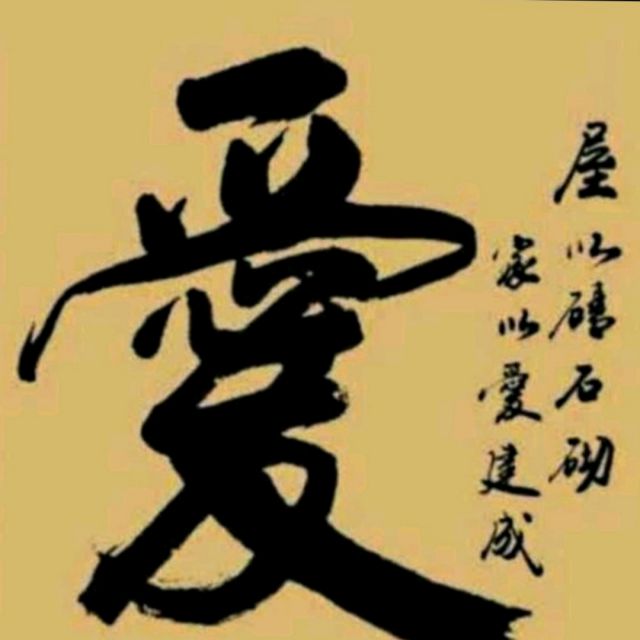 愛
屋以礎石砌
家以愛建成